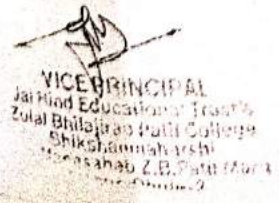 VICE PRINCIPAL
Jai Hind Educational Trust's
Zulal Bhilajirao Patil College
Shikshanmaharshi
Z.B. Patil Marg